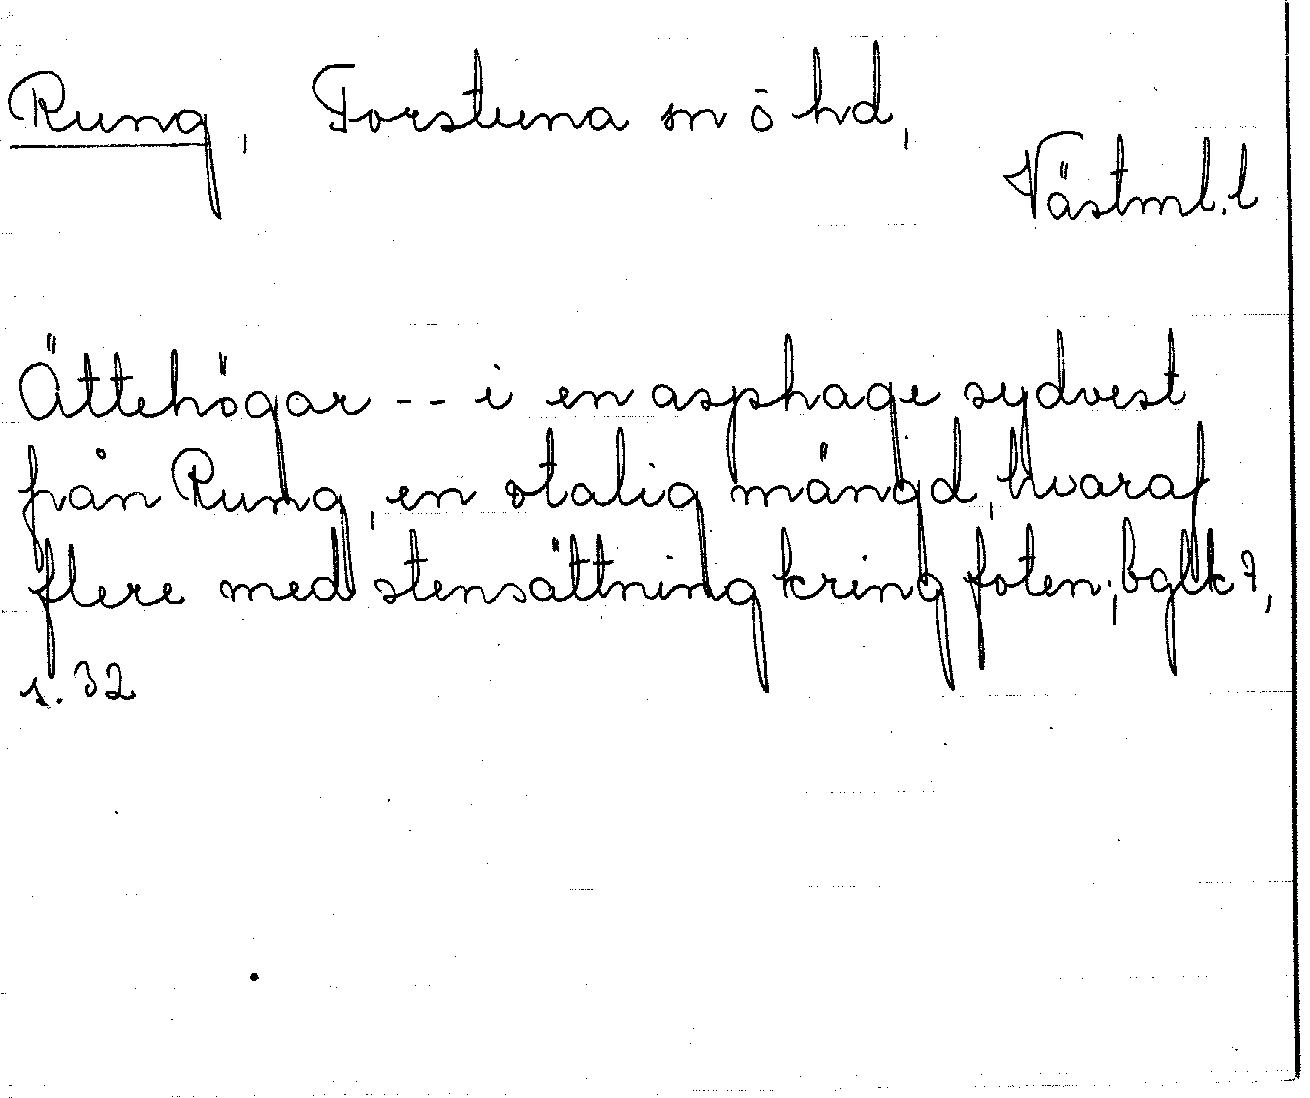 Rung, Torstuna sn o hd,
Västml. l
Ättehögar -- i en asphage sydvest
från Rung, en otalig mängd, hvaraf
flere med stensättning kring foten; bglk 7,
s. 32